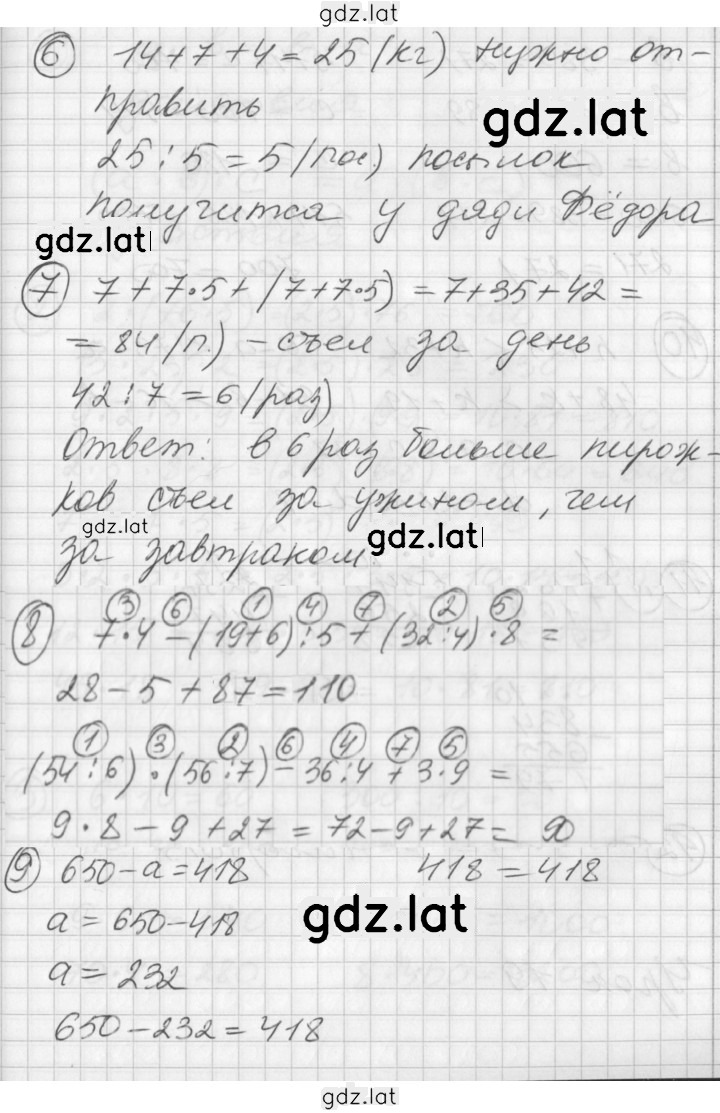 gdz.lat
6 14+7+4=25 (кг) нужно от-
править
gdz.lat
25:5=5 (пос.) посылок
получится у дяди Фёдора
gdz.lat
7 7+7·5+(7+7·5)=7+35+42=
=84 (п.) – съел за день
42:7=6 (раз)
Ответ: в 6 раз больше пирож-
ков съел за ужином, чем
gdz.lat
gdz.lat
за завтраком.
3 6 1 4 7 2 5
8 7·4–(19+6):5+(32:4)·8=
28–5+87=110
1 3 2 6 4 7 5
(54:6)·(56:7)–36:4+3·9=
9·8–9+27=72–9+27=90
9 650–a=418 418=418
gdz.lat
a=650–418
a=232
650–232=418
gdz.lat